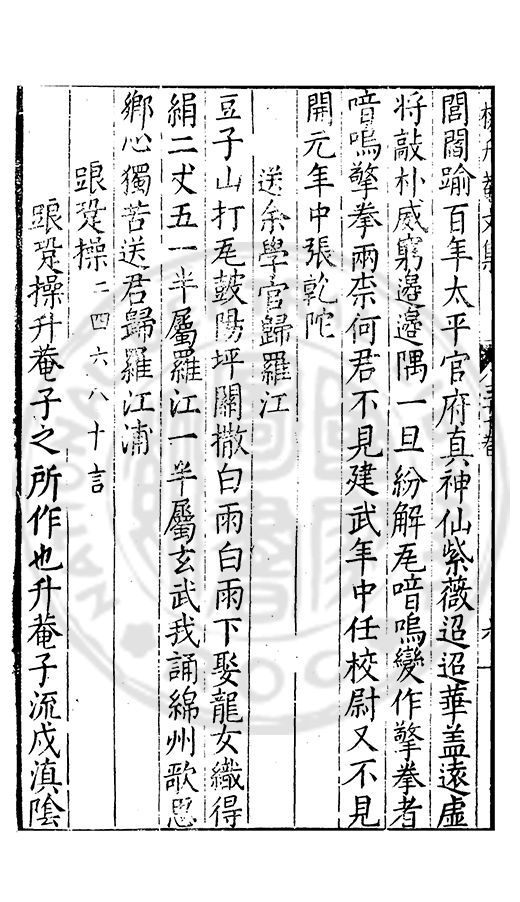 閭閻踰百年太平官府真神仙紫薇迢迢華盖遠虛
将敲朴威窮邉邉隅一旦紛解瓦喑嗚變作擎拳者
喑嗚擎拳兩柰何君不見建武年中任校尉又不見
開元年中張乾陀
送余學官歸羅江
豆子山打瓦鼓陽坪關撒白雨白雨下娶龍女織得
絹二丈五一半屬羅江一半屬玄武我誦綿州歌思
鄉心獨苦送君歸羅江浦
踉㲋操二四六八十言
操升菴子之所作也升菴子流戍滇陰